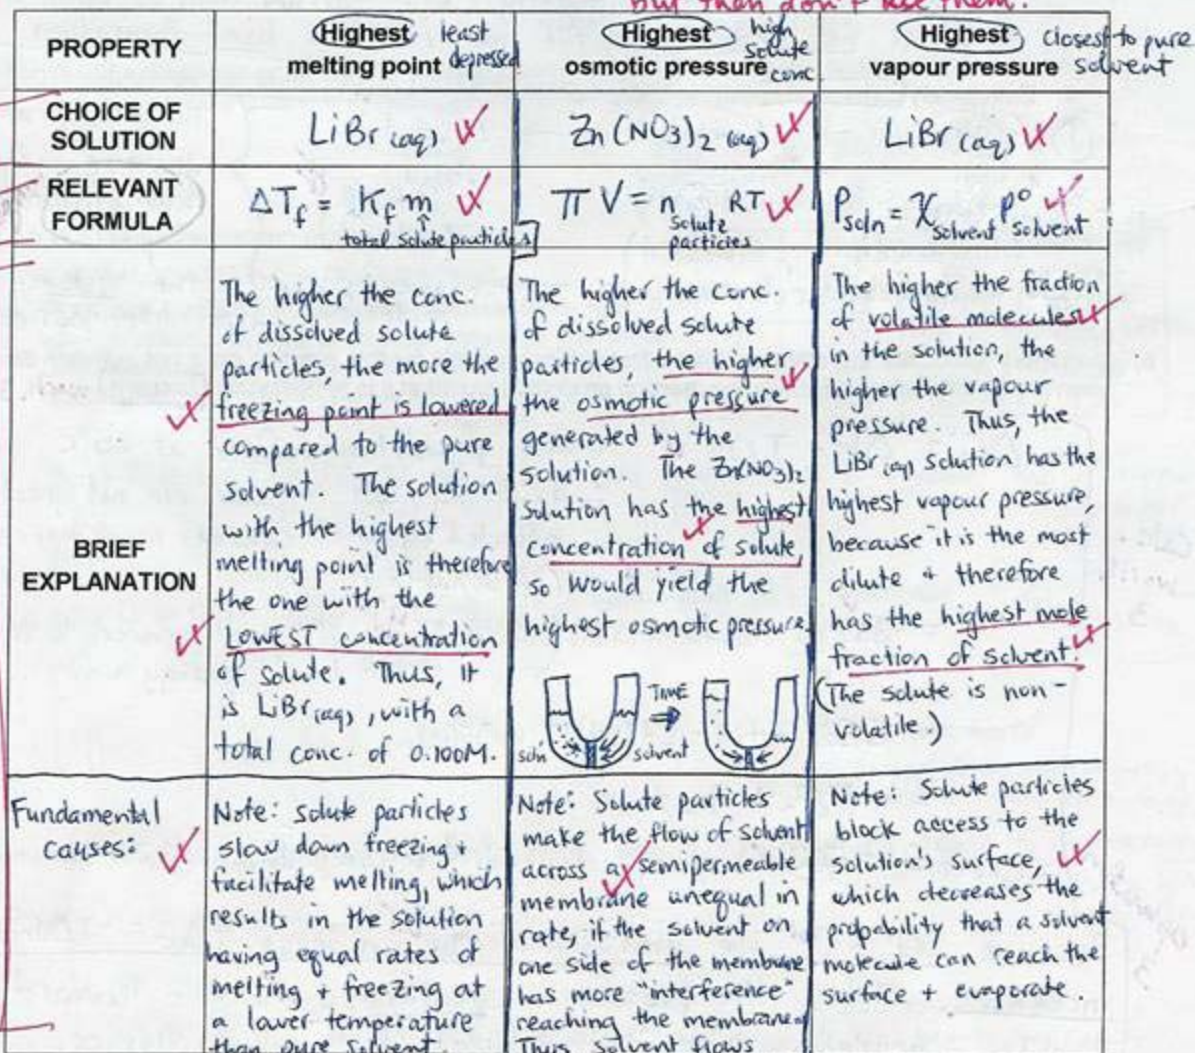 but then don't use them.
PROPERTY
Highest least
melting point depressed
Highest high
osmotic pressure solute
conc.
Highest closest to pure
vapour pressure solvent
CHOICE OF
SOLUTION
LiBr (aq)
Zn(NO3)2 (aq)
LiBr (aq)
RELEVANT
FORMULA
ΔTf = Kf m
total solute particles
πV = n solute particles RT
Psoln = χsolvent P°solvent
BRIEF
EXPLANATION
The higher the conc.
of dissolved solute
particles, the more the
freezing point is lowered
compared to the pure
solvent. The solution
with the highest
melting point is therefore
the one with the
LOWEST concentration
of solute. Thus, it
is LiBr (aq), with a
total conc. of 0.100M.
The higher the conc.
of dissolved solute
particles, the higher
the osmotic pressure
generated by the
solution. The Zn(NO3)2
solution has the highest
concentration of solute,
so would yield the
highest osmotic pressure.
TIME
soln solvent
The higher the fraction
of volatile molecules
in the solution, the
higher the vapour
pressure. Thus, the
LiBr (aq) solution has the
highest vapour pressure,
because it is the most
dilute + therefore
has the highest mole
fraction of solvent.
(The solute is non-
volatile.)
Fundamental
causes:
Note: solute particles
slow down freezing +
facilitate melting, which
results in the solution
having equal rates of
melting + freezing at
a lower temperature
than pure solvent.
Note: Solute particles
make the flow of solvent
across a semipermeable
membrane unequal in
rate, if the solvent on
one side of the membrane
has more "interference"
reaching the membrane.
Thus solvent flows
Note: Solute particles
block access to the
solution's surface,
which decreases the
probability that a solvent
molecule can reach the
surface + evaporate.